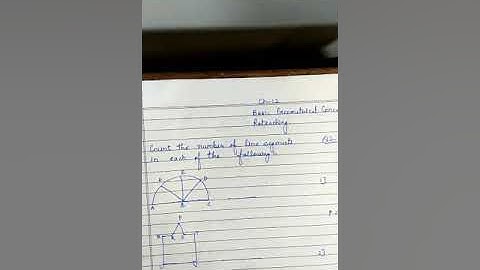 Ch-12
Basic Geometrical Conce
Reteaching
Count the number of line segments
in each of the following:
1)
A
B
C
2)